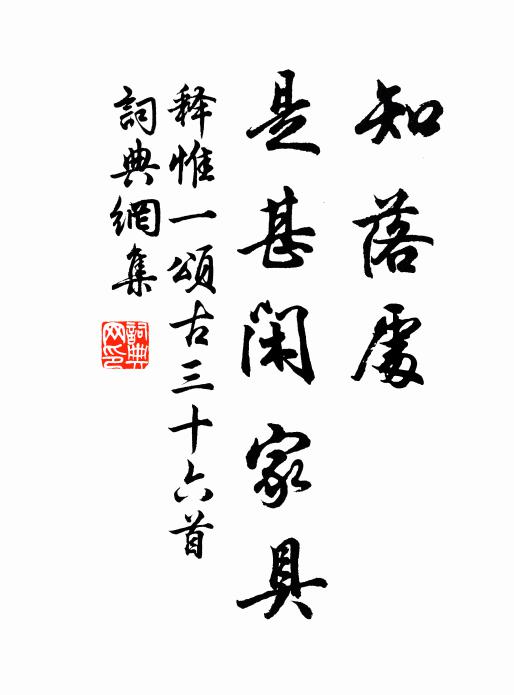 知落處
是甚閑家具
释惟一頌古三十六首
詞典網集
詞典网印